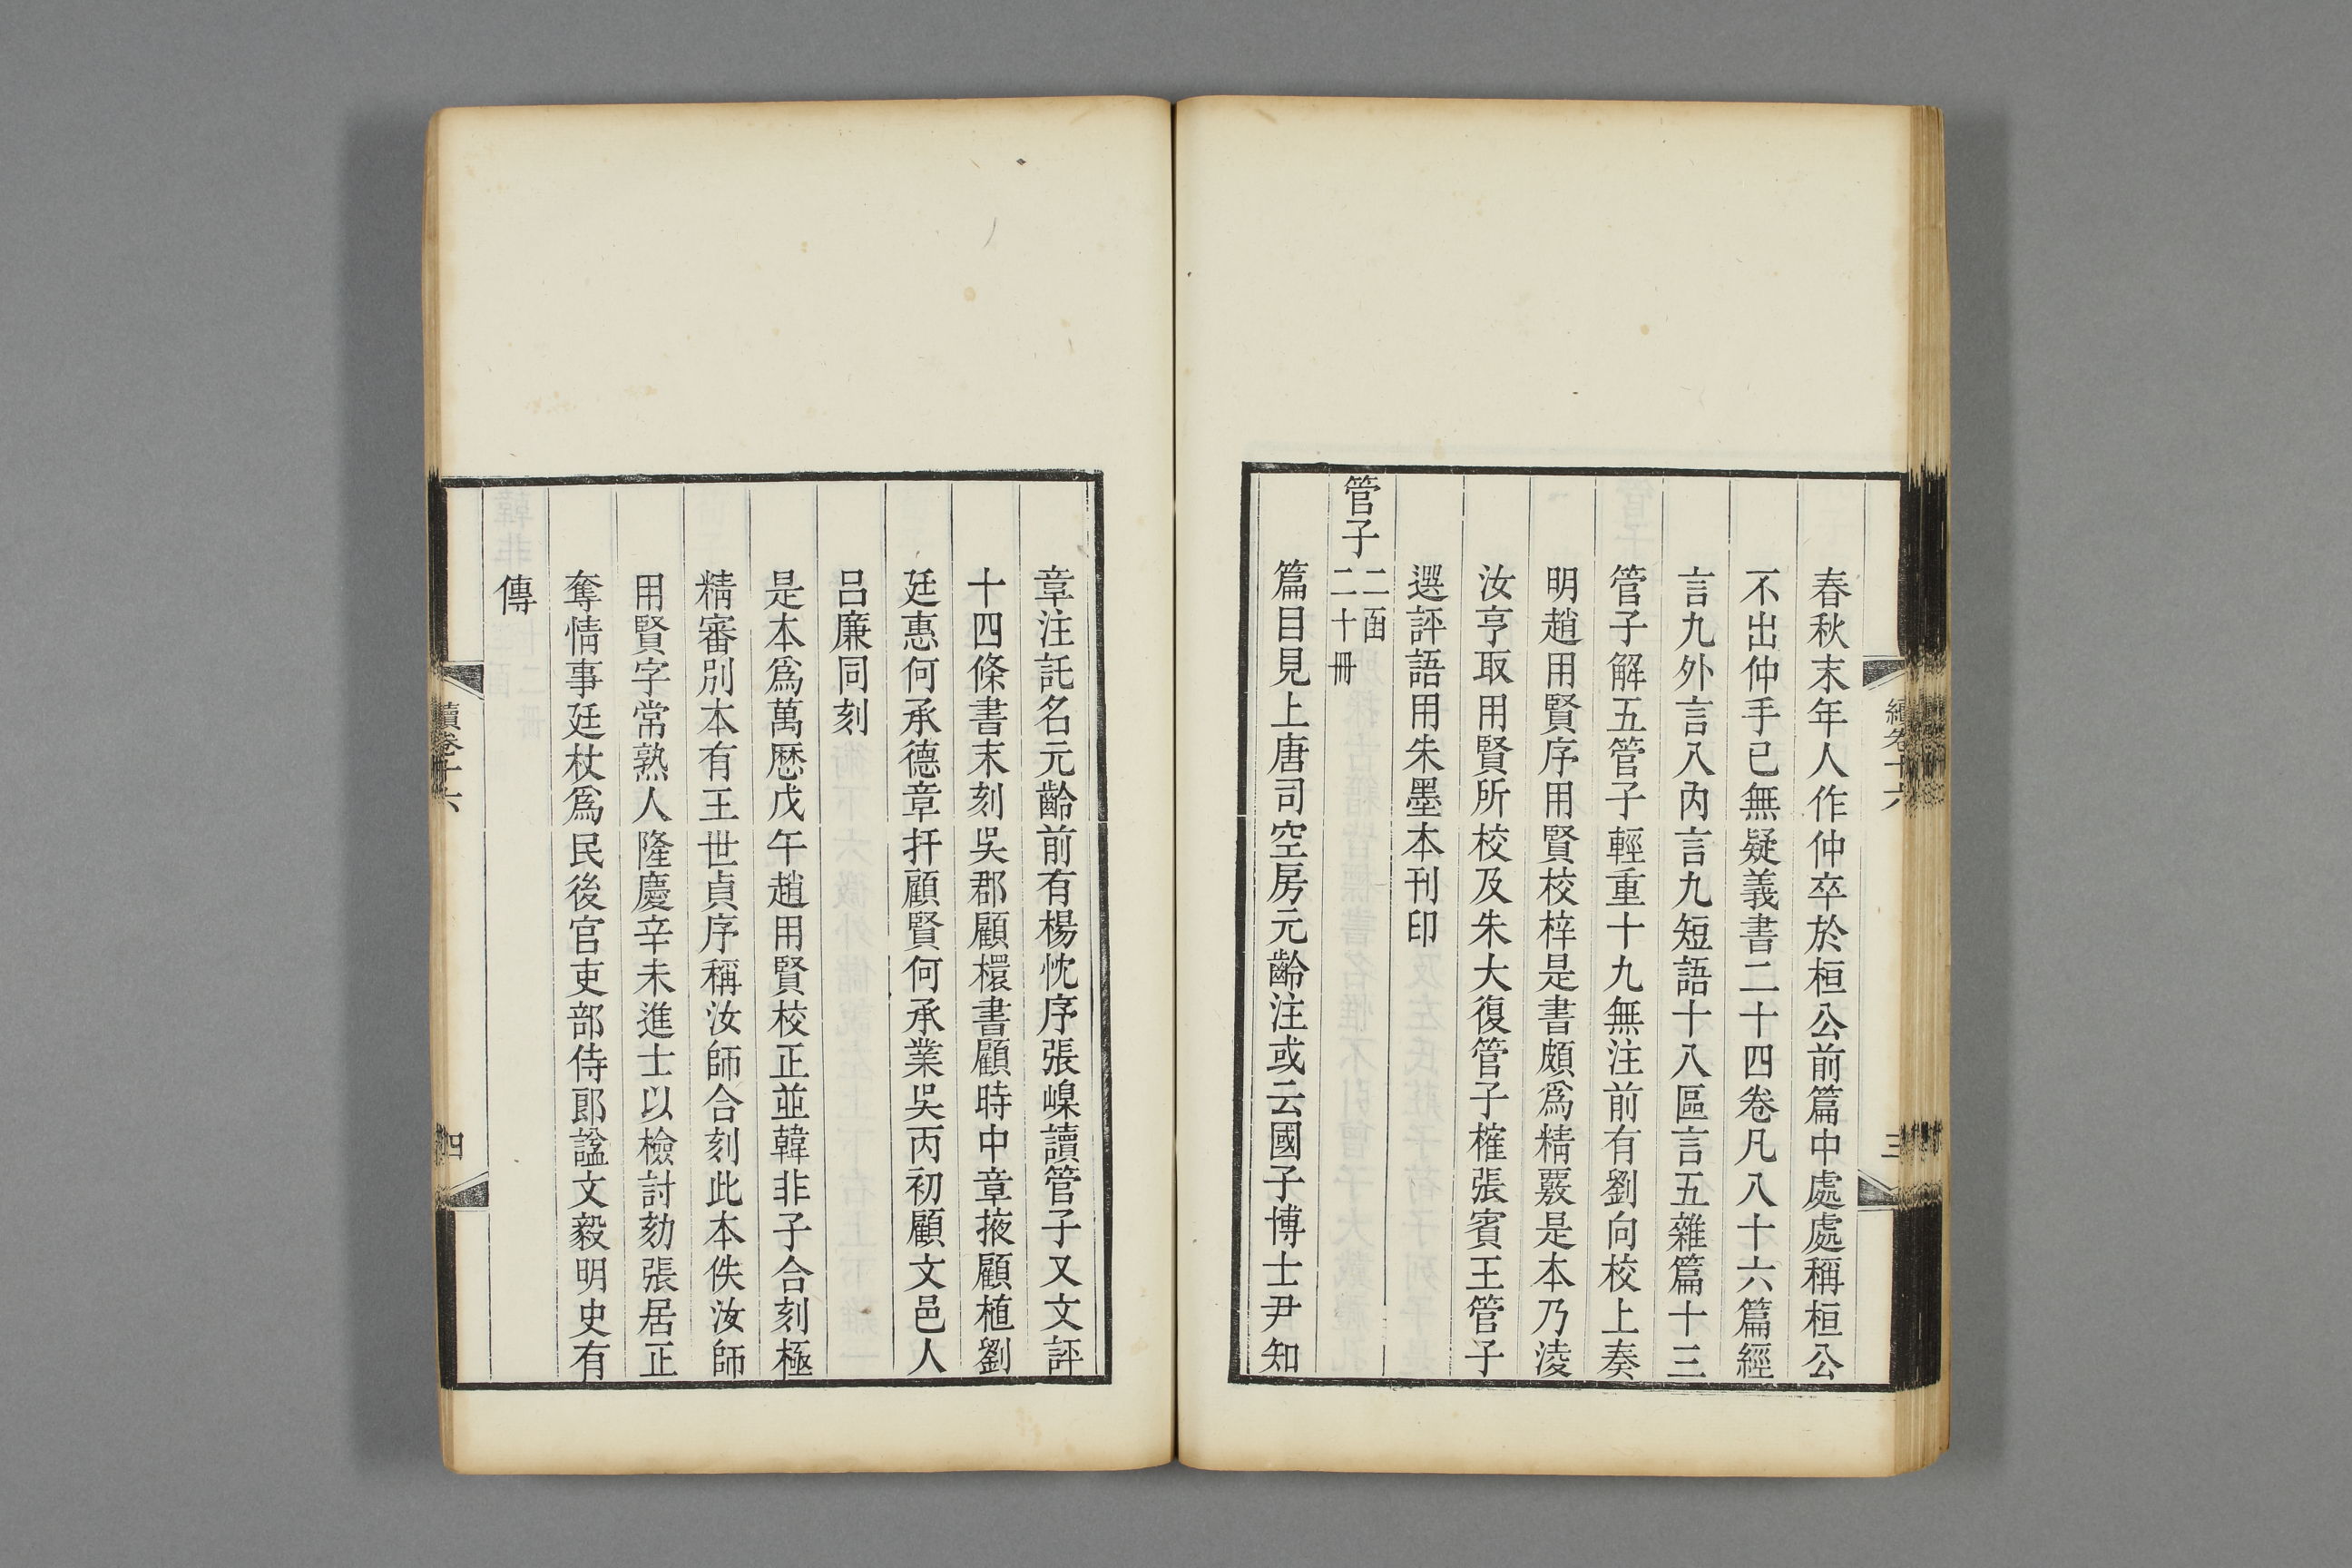 春秋末年人作仲卒於桓公前篇中處處稱桓公
不出仲手已無疑義書二十四卷凡八十六篇經
言九外言八內言九短語十八區言五雜篇十三
管子解五管子輕重十九無注前有劉向校上奏
明趙用賢序用賢校梓是書頗爲精覈是本乃淩
汝亨取用賢所校及朱大復管子榷張賓王管子
選評語用朱墨本刊印
管子二函二十冊
篇目見上唐司空房元齡注或云國子博士尹知
續卷十六
三
章注託名元齡前有楊忱序張嵲讀管子又文評
十四條書末刻吳郡顧櫰書顧時中章掖顧植劉
廷惠何承德章扞顧賢何承業吳丙初顧文邑人
呂廉同刻
是本爲萬厯戊午趙用賢校正並韓非子合刻極
精審別本有王世貞序稱汝師合刻此本佚汝師
用賢字常熟人隆慶辛未進士以檢討劾張居正
奪情事廷杖爲民後官吏部侍郎諡文毅明史有
傳
續卷十六
四